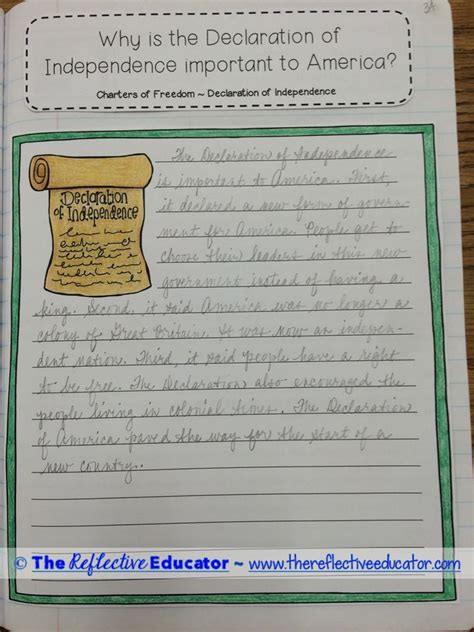 34
Why is the Declaration of
Independence important to America?
Charters of Freedom ~ Declaration of Independence
Declaration
of Independence
The Declaration of Independence
is important to America. First,
it declared a new form of govern-
ment for America. People get to
choose their leaders in this new
government instead of having a
king. Second, it said America was no longer a
colony of Great Britain. It was now an indepen-
dent nation. Third, it said people have a right
to be free. The Declaration also encouraged the
people living in colonial times. The Declaration
of America paved the way for the start of a
new country.
© The Reflective Educator ~ www.thereflectiveeducator.com